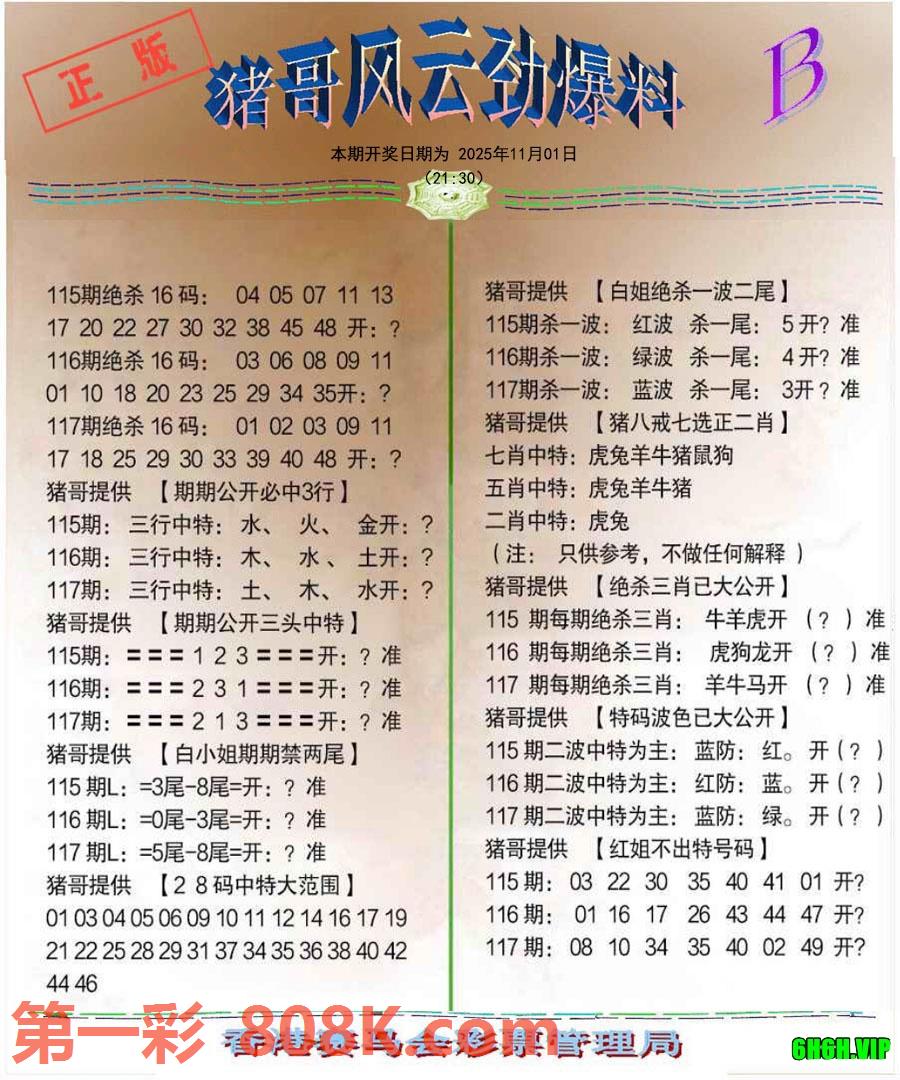 正版
猪哥风云劲爆料
B
本期开奖日期为 2025年11月01日
(21:30)
115期绝杀 16 码： 04 05 07 11 13
17 20 22 27 30 32 38 45 48 开：?
116期绝杀 16 码： 03 06 08 09 11
01 10 18 20 23 25 29 34 35开：?
117期绝杀 16 码： 01 02 03 09 11
17 18 25 29 30 33 39 40 48 开：?
猪哥提供 【期期公开必中3行】
115期： 三行中特： 水、 火、 金开：?
116期： 三行中特： 木、 水、 土开：?
117期： 三行中特： 土、 木、 水开：?
猪哥提供 【期期公开三头中特】
115期：〓〓〓 1 2 3 〓〓〓开：? 准
116期：〓〓〓 2 3 1 〓〓〓开：? 准
117期：〓〓〓 2 1 3 〓〓〓开：? 准
猪哥提供 【白小姐期期禁两尾】
115 期L：=3尾-8尾=开：? 准
116 期L：=0尾-3尾=开：? 准
117 期L：=5尾-8尾=开：? 准
猪哥提供 【2 8 码中特大范围】
01 03 04 05 06 09 10 11 12 14 16 17 19
21 22 25 28 29 31 37 34 35 36 38 40 42
44 46
猪哥提供 【白姐绝杀一波二尾】
115期杀一波： 红波 杀一尾： 5 开? 准
116期杀一波： 绿波 杀一尾： 4 开? 准
117期杀一波： 蓝波 杀一尾： 3开 ? 准
猪哥提供 【猪八戒七选正二肖】
七肖中特：虎兔羊牛猪鼠狗
五肖中特：虎兔羊牛猪
二肖中特：虎兔
（注： 只供参考，不做任何解释 ）
猪哥提供 【绝杀三肖已大公开】
115 期每期绝杀三肖： 牛羊虎开 （? ）准
116 期每期绝杀三肖： 虎狗龙开 （? ）准
117 期每期绝杀三肖： 羊牛马开 （? ）准
猪哥提供 【特码波色已大公开】
115 期二波中特为主：蓝防：红。开（? ）
116 期二波中特为主：红防：蓝。开（? ）
117 期二波中特为主：蓝防：绿。开（? ）
猪哥提供 【红姐不出特号码】
115 期： 03 22 30 35 40 41 01 开?
116 期： 01 16 17 26 43 44 47 开?
117 期： 08 10 34 35 40 02 49 开?
第一彩 808K.com
香港赛马会彩票管理局
6H6H.VIP